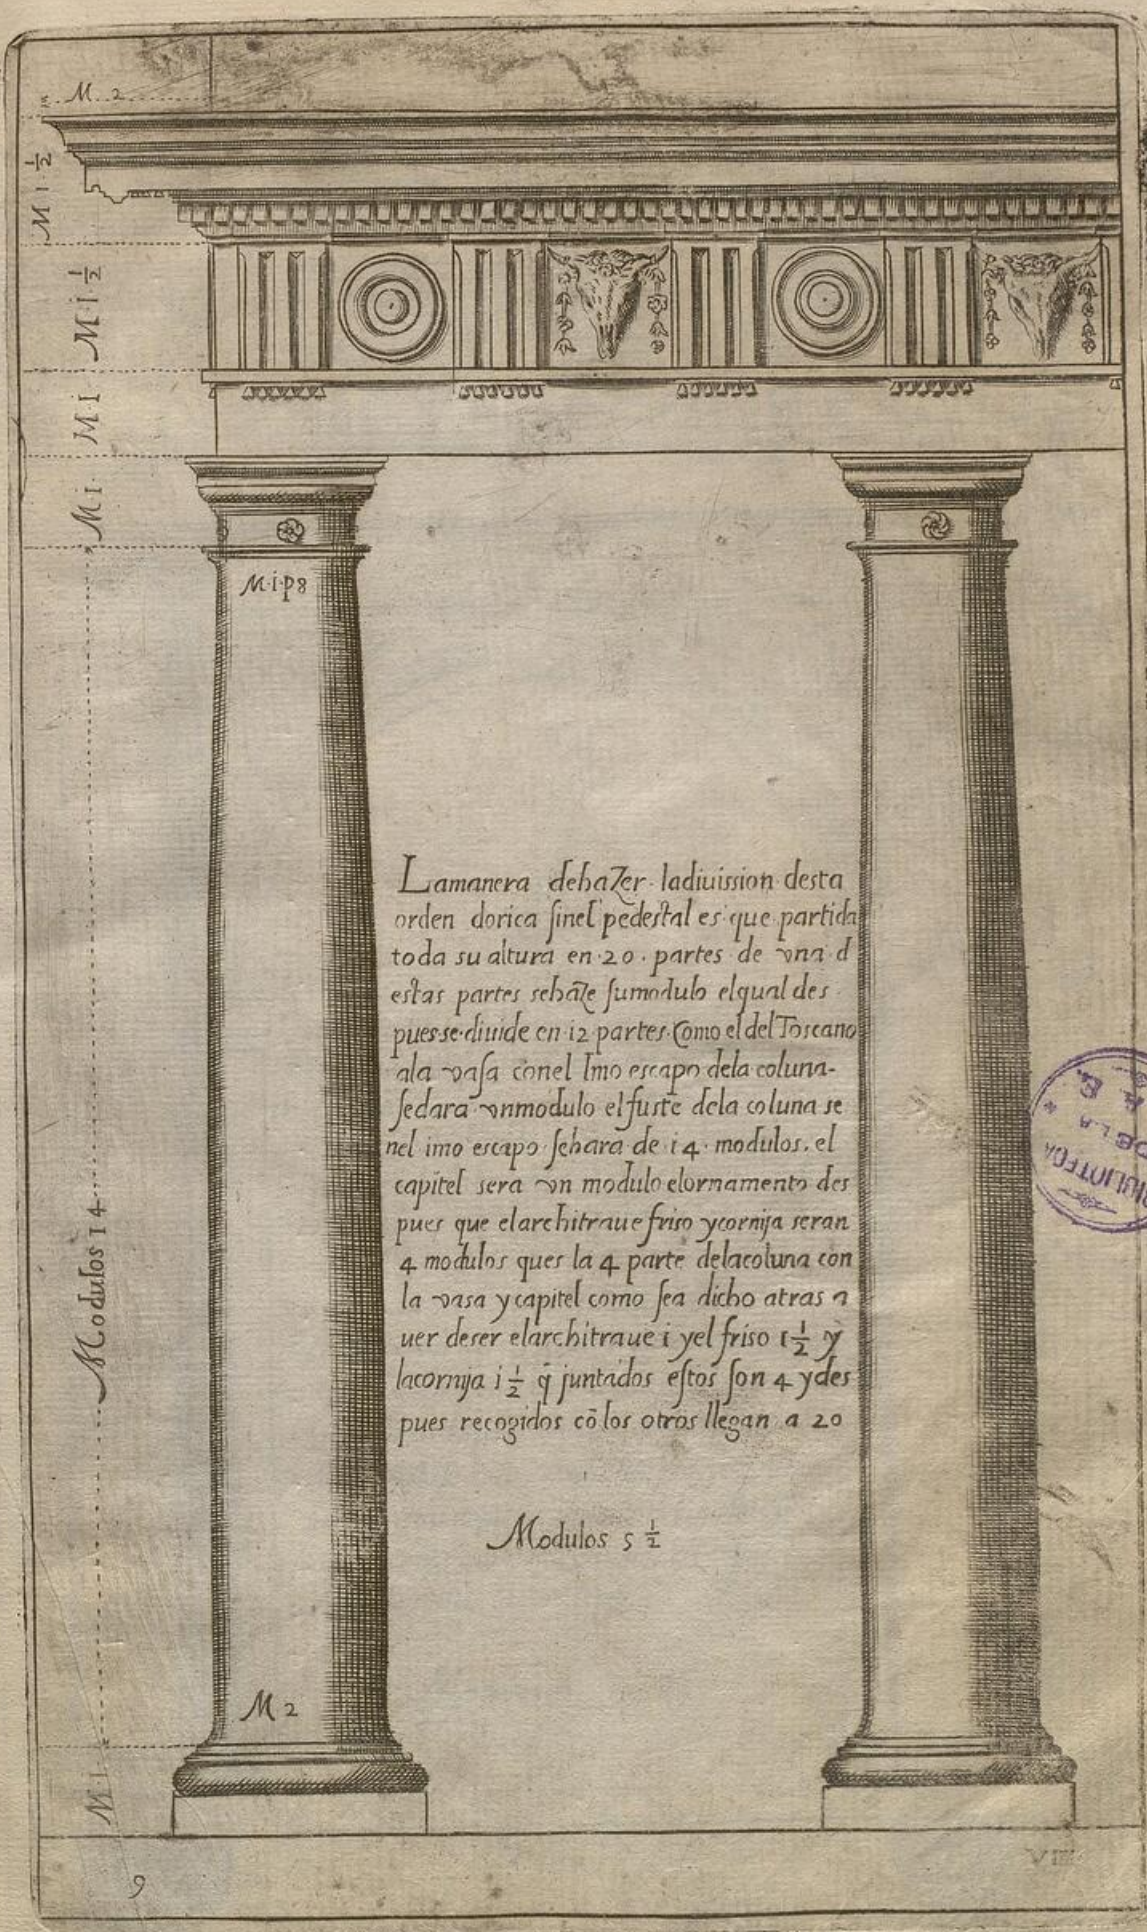 M 2
M 1 ½
M·i ½
M·I
M i·
M·i·p8
Lamanera dehaZer·ladiuission desta
orden dorica sinel pedestal es que partida
toda su altura en·20· partes de vna d
estas partes sehāZe sumodulo elqual des
pues·se·diuide en i2 partes·Como el del Toscano
ala vasa conel Imo escapo dela coluna-
sedara vnmodulo el fuste dela coluna se
nel imo escapo sehara de i4· modulos. el
capitel sera vn modulo elornamento des
pues que elarchitraue friso ycornija seran
4 modulos ques la 4 parte delacoluna con
la vasa y capitel como sea dicho atras a
uer deser elarchitraue i yel friso 1½ y
lacornija i ½ q̄ juntados estos son 4 ydes
pues recogidos cō los otros llegan a 20
Modulos 5 ½
Modulos 14
M 2
M I
9
VIIII
BIBLIOTECA
DE LA